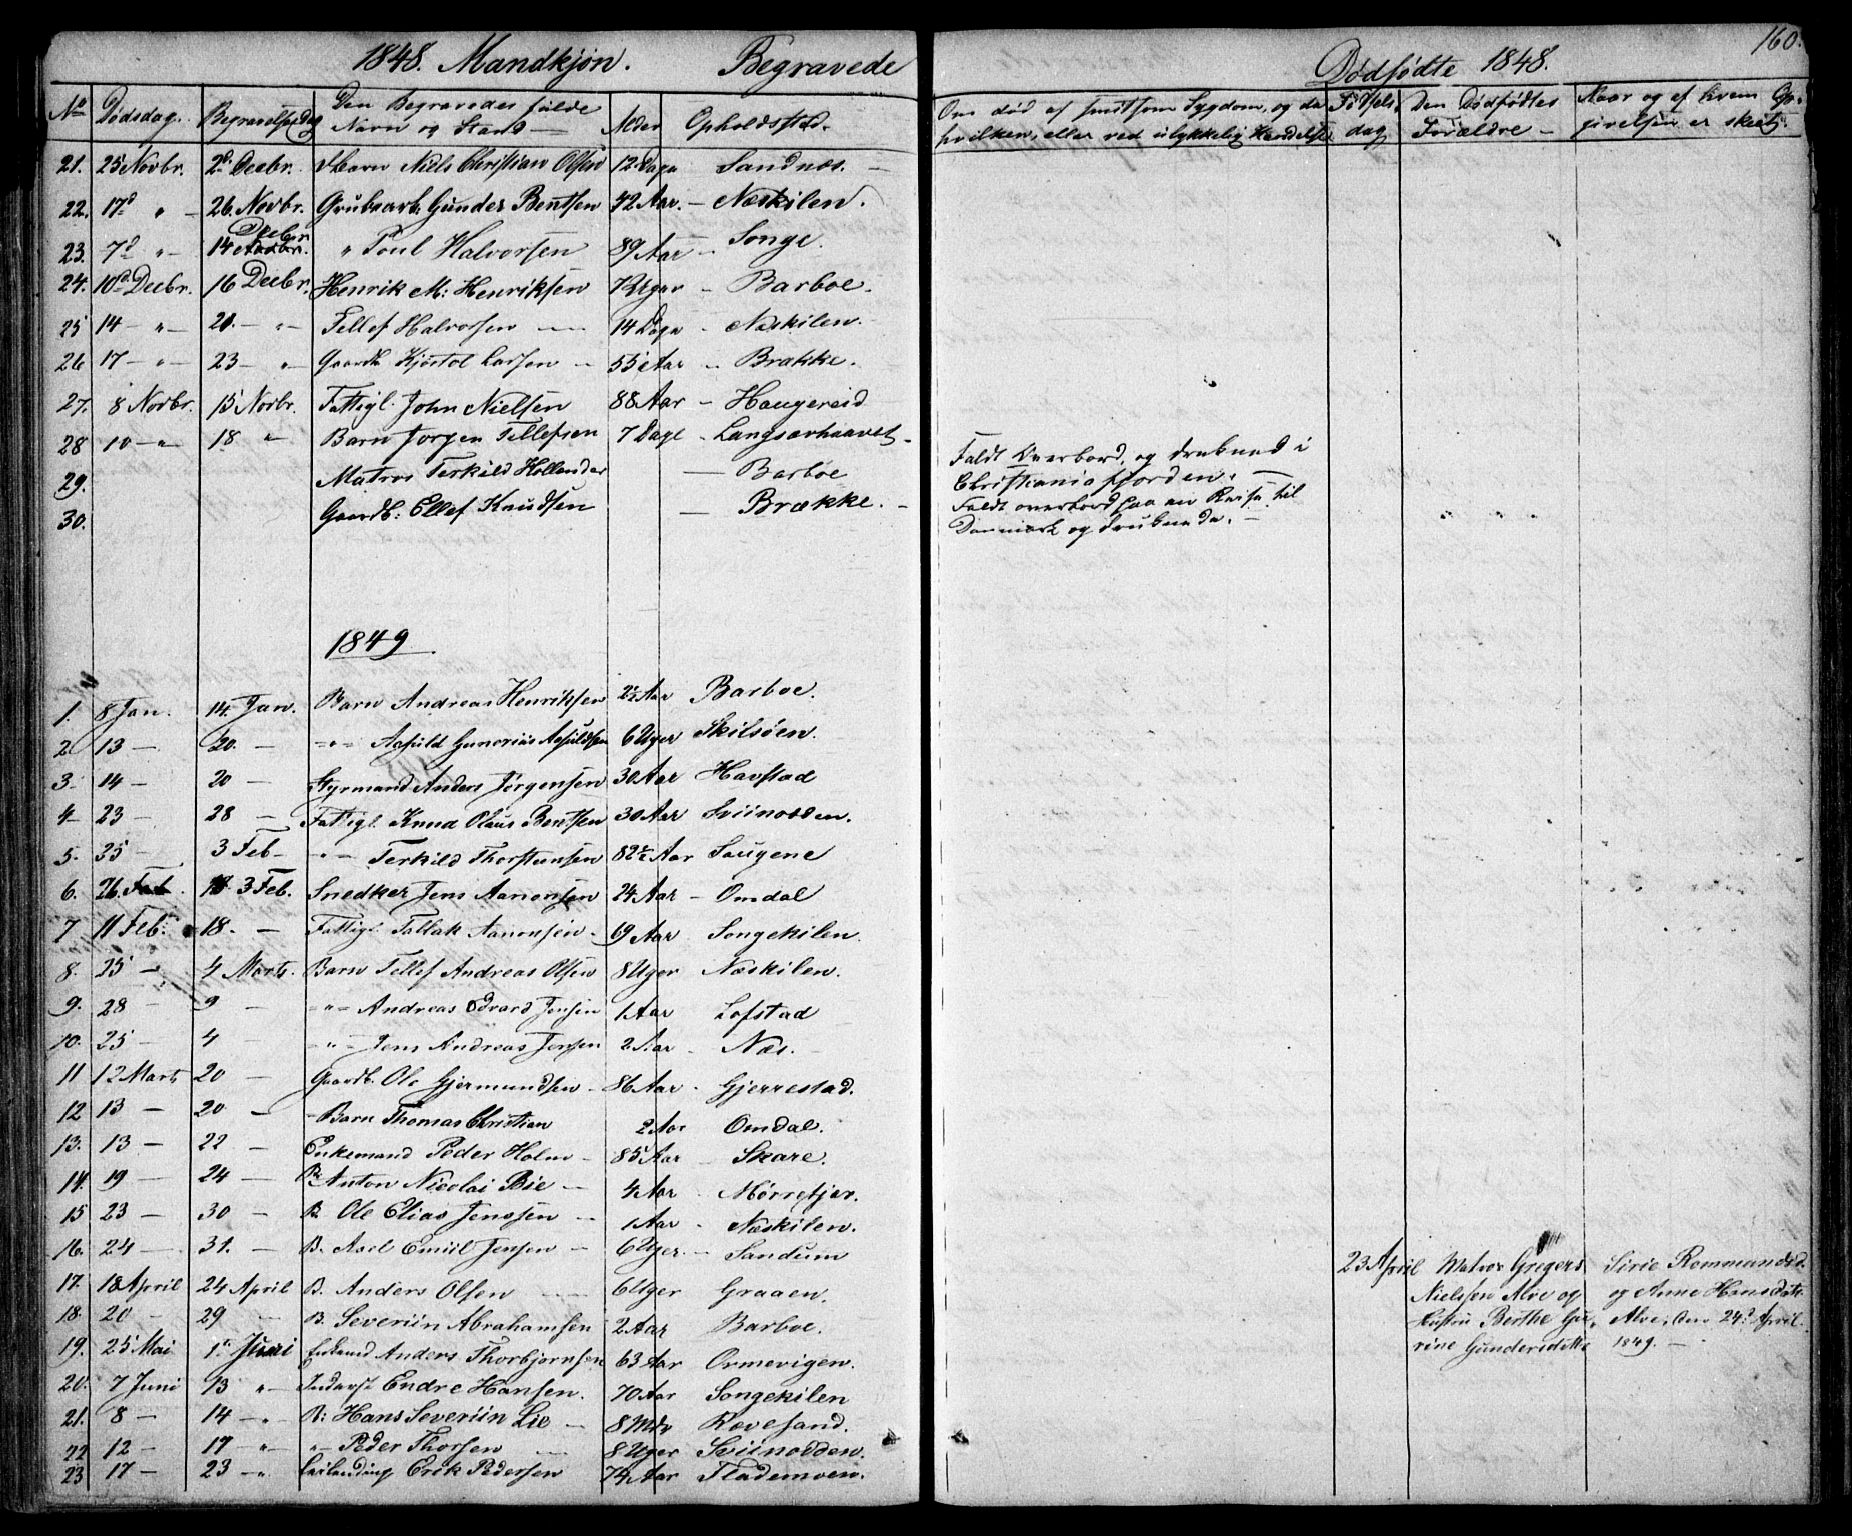 1848. Mandkjøn. Begravede
No Dødsdag. Begravelsesdag Den Begravedes fulde Navn og Stand — Alder Opholdssted.
21. 25 Novbr. 2d Decbr. Barn Niels Christian Olsen 12 Dage Sandnæs. —
22. 17d " — 26. Novbr. Grubearb. Gunder Bentsen 42 Aar. — Næskilen.
23. 7d " — 14 Decbr. " Poul Halvorsen 89 Aar — Songe.
24. 10d Decbr. 16 Decbr. Henrik M: Henriksen Uger — Barboe.
25 14 — " — 21. — " — Tellef Halvorsen — 14 Dage - Næskilen.
26 17 — " — 23 — " Gaardb. Kjøstol Larsen — 55 Aar — Brække.
27. 8 Novbr. 15 Novbr. Fattigl. John Nielsen 88 Aar — Haugereid
28 10 — " 18 " Barn Jørgen Tellefsen 7 Dage - Langsævhaavet -
29. Matros Terkild Hollander — Barboe
30. Gaardb: Ellef Knudsen — Brække. -
1849
1. 8 Jan. 14. Jan. Barn Andreas Henriksen 2½ Aar Barboe.
2. 13 — 20. — " — Aasuld Gunerius Aasuldsen 6 Uger Skilsøen.
3. 14 — 20 — Styrmand Anders Jørgensen 30 Aar Havstad
4 23 — 28 — Fattigl. Knud Olaus Bentsen 30 Aar Sviinodden.
5. 25 — 3 Feb — " — Terkild Thorstensen 82½ Aar Saugene
6. 26. 3 Feb. Snedker Jens Aanonsen 24 Aar — Omdal
7 11 Feb: 18. — Fattigl. Tallak Aanonsen - 69 Aar — Songekilen.
8. 25 — 4 Marts. Barn Tellef Andreas Olsen 8 Uger Næskilen.
9. 28 — 9 — " — Andreas Edvard Jensen 1 Aar Lofstad
10. 25 — 4 — " — Jens Andreas Jensen 2 Aar - Næs. -
11 12 Marts 20 — Gaardb. Ole Gjermundsen - 86 Aar - Gjerrestad.
12 13 — 20 — Barn Thomas Christian 2 Aar Omdal.
13. 13 — 22 — Enkemand Peder Holm - 85 Aar — Skare.
14. 19 — 24 — B. Anton Nicolai Bie — 4 Aar - Mørrefjær.
15 23 — 30 — B. Ole Elias Jenssen — 1 Aar - Næskilen.
16. 24 — 31. — B. Axel Emiil Jensen — 6 Uger. — Sandum
17. 18 April 24 April B. Anders Olsen — 6 Uger Graaen.
18. 20 — 29 — B. Severiin Abrahamsen 2 Aar Barboe.
19. 25 Mai 1st Juni Enkemd Anders Thorbjørnsen 63 Aar Ormevigen.
20. 7 Juni 13 " — Inderst Endre Hansen. 70 Aar Songekilen
21. 8 — 14 — " — B: Hans Severiin Lie — 8 Mdr Revesand.
22 12 — 17 — " — " — Peder Thorsen — 8 Uger Sviinodden.
23 17 — 23 — " Erik Pedersen 74 Aar Flademoen.
160.
Dødfødte 1848.
Om død af smitsom Sygdom, og da hvilken, eller ved ulykkelig Hændelse Fødselsdag Den Dødfødtes Forældre — Naar og af hvem Opgivelsen er skeet.
Faldt Overbord, og druknede i
Christianiafjorden. —
Faldt overbord paa en Reise til
Danmark og druknede. —
23 April Matros Gregers
Nielssen Alve og
Hustru Berthe Gu-
rine Gundersdatter
Sirie Rommundsd.
og Anne Hansdatt.
Alve, den 24d April
1849. —